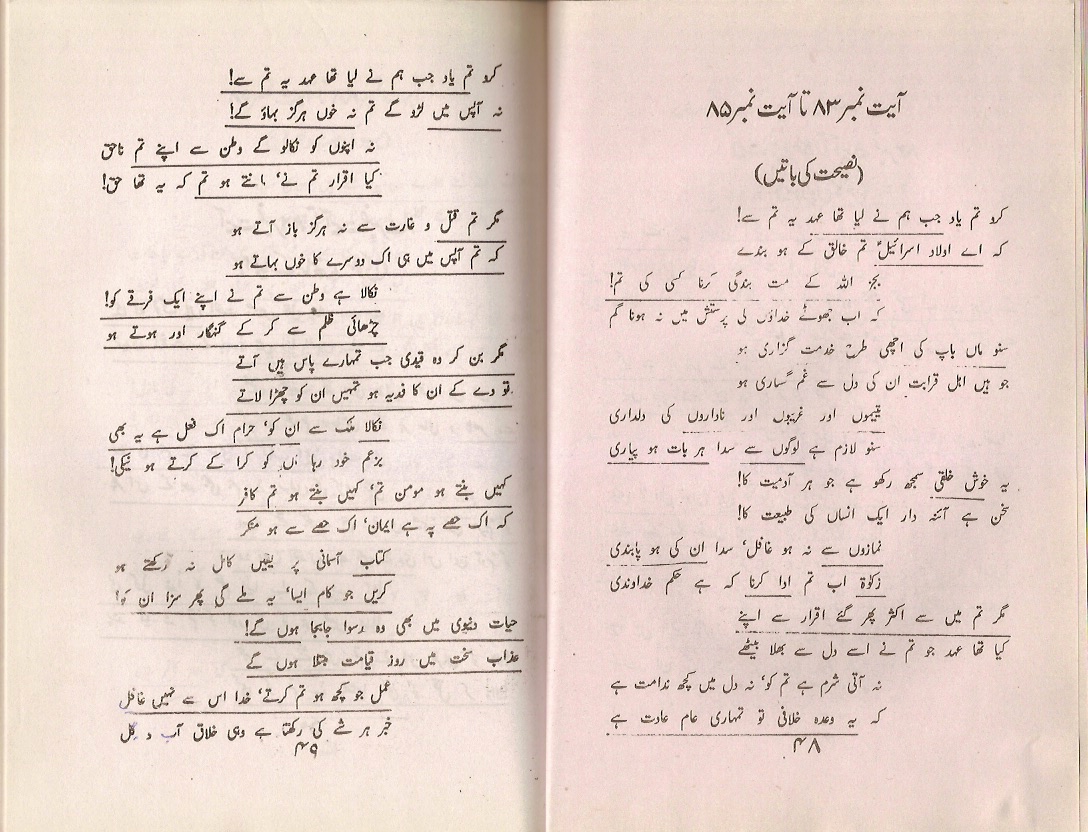 آیت نمبر ۸۳ تا آیت نمبر ۸۵
(نصیحت کی باتیں)
کرو تم یاد جب ہم نے لیا تھا عہد یہ تم سے!
کہ اے اولاد اسرائیلؑ تم خالق کے ہو بندے
بجز اللہ کے مت بندگی کرنا کسی کی تم!
کہ اب جھوٹے خداؤں کی پرستش میں نہ ہونا گم
سنو ماں باپ کی اچھی طرح خدمت گزاری ہو
جو ہیں اہل قرابت ان کی دل سے غم گساری ہو
یتیموں اور غریبوں اور ناداروں کی دلداری
سنو لازم ہے لوگوں سے سدا ہر بات ہو پیاری
یہ خوش خلقی سمجھ رکھو ہے جوہر آدمیت کا!
سخن ہے آئنہ دار ایک انساں کی طبیعت کا!
نمازوں سے نہ ہو غافل، سدا ان کی ہو پابندی
زکوٰۃ اب تم ادا کرنا کہ ہے حکم خداوندی
مگر تم میں سے اکثر پھر گئے اقرار سے اپنے
کیا تھا عہد جو تم نے اسے دل سے بھلا بیٹھے
نہ آتی شرم ہے تم کو، نہ دل میں کچھ ندامت ہے
کہ یہ وعدہ خلافی تو تمہاری عام عادت ہے
۴۸
کرو تم یاد جب ہم نے لیا تھا عہد یہ تم سے!
نہ آپس میں لڑو گے تم نہ خوں ہرگز بہاؤ گے!
نہ اپنوں کو نکالو گے وطن سے اپنے تم ناحق
کیا اقرار تم نے، مانتے ہو تم کہ یہ تھا حق!
مگر تم قتل و غارت سے نہ ہرگز باز آتے ہو
کہ تم آپس میں ہی اک دوسرے کا خوں بہاتے ہو
نکالا ہے وطن سے تم نے اپنے ایک فرقے کو!
چڑھائی ظلم سے کر کے گنہگار اور ہوتے ہو
مگر بن کر وہ قیدی جب تمہارے پاس ہیں آتے
تو دے کے ان کا فدیہ ہو تمہیں ان کو چھڑا لاتے
نکالا ملک سے ان کو، حرام اک فعل ہے یہ بھی
بزعم خود رہا ان کو کرا کے کرتے ہو نیکی!
کہیں بنتے ہو مومن تم، کہیں بنتے ہو تم کافر
کہ اک حصے پہ ہے ایمان، اک حصے سے ہو منکر
کتاب آسمانی پر یقیں کامل نہ رکھتے ہو
کریں جو کام ایسا، یہ ملے گی پھر سزا ان کو!
حیات دنیوی میں بھی وہ رسوا جابجا ہوں گے!
عذاب سخت میں روز قیامت مبتلا ہوں گے
عمل جو کچھ ہو تم کرتے، خدا اس سے نہیں غافل
خبر ہر شے کی رکھتا ہے وہی خلاق آب و گل
۴۹